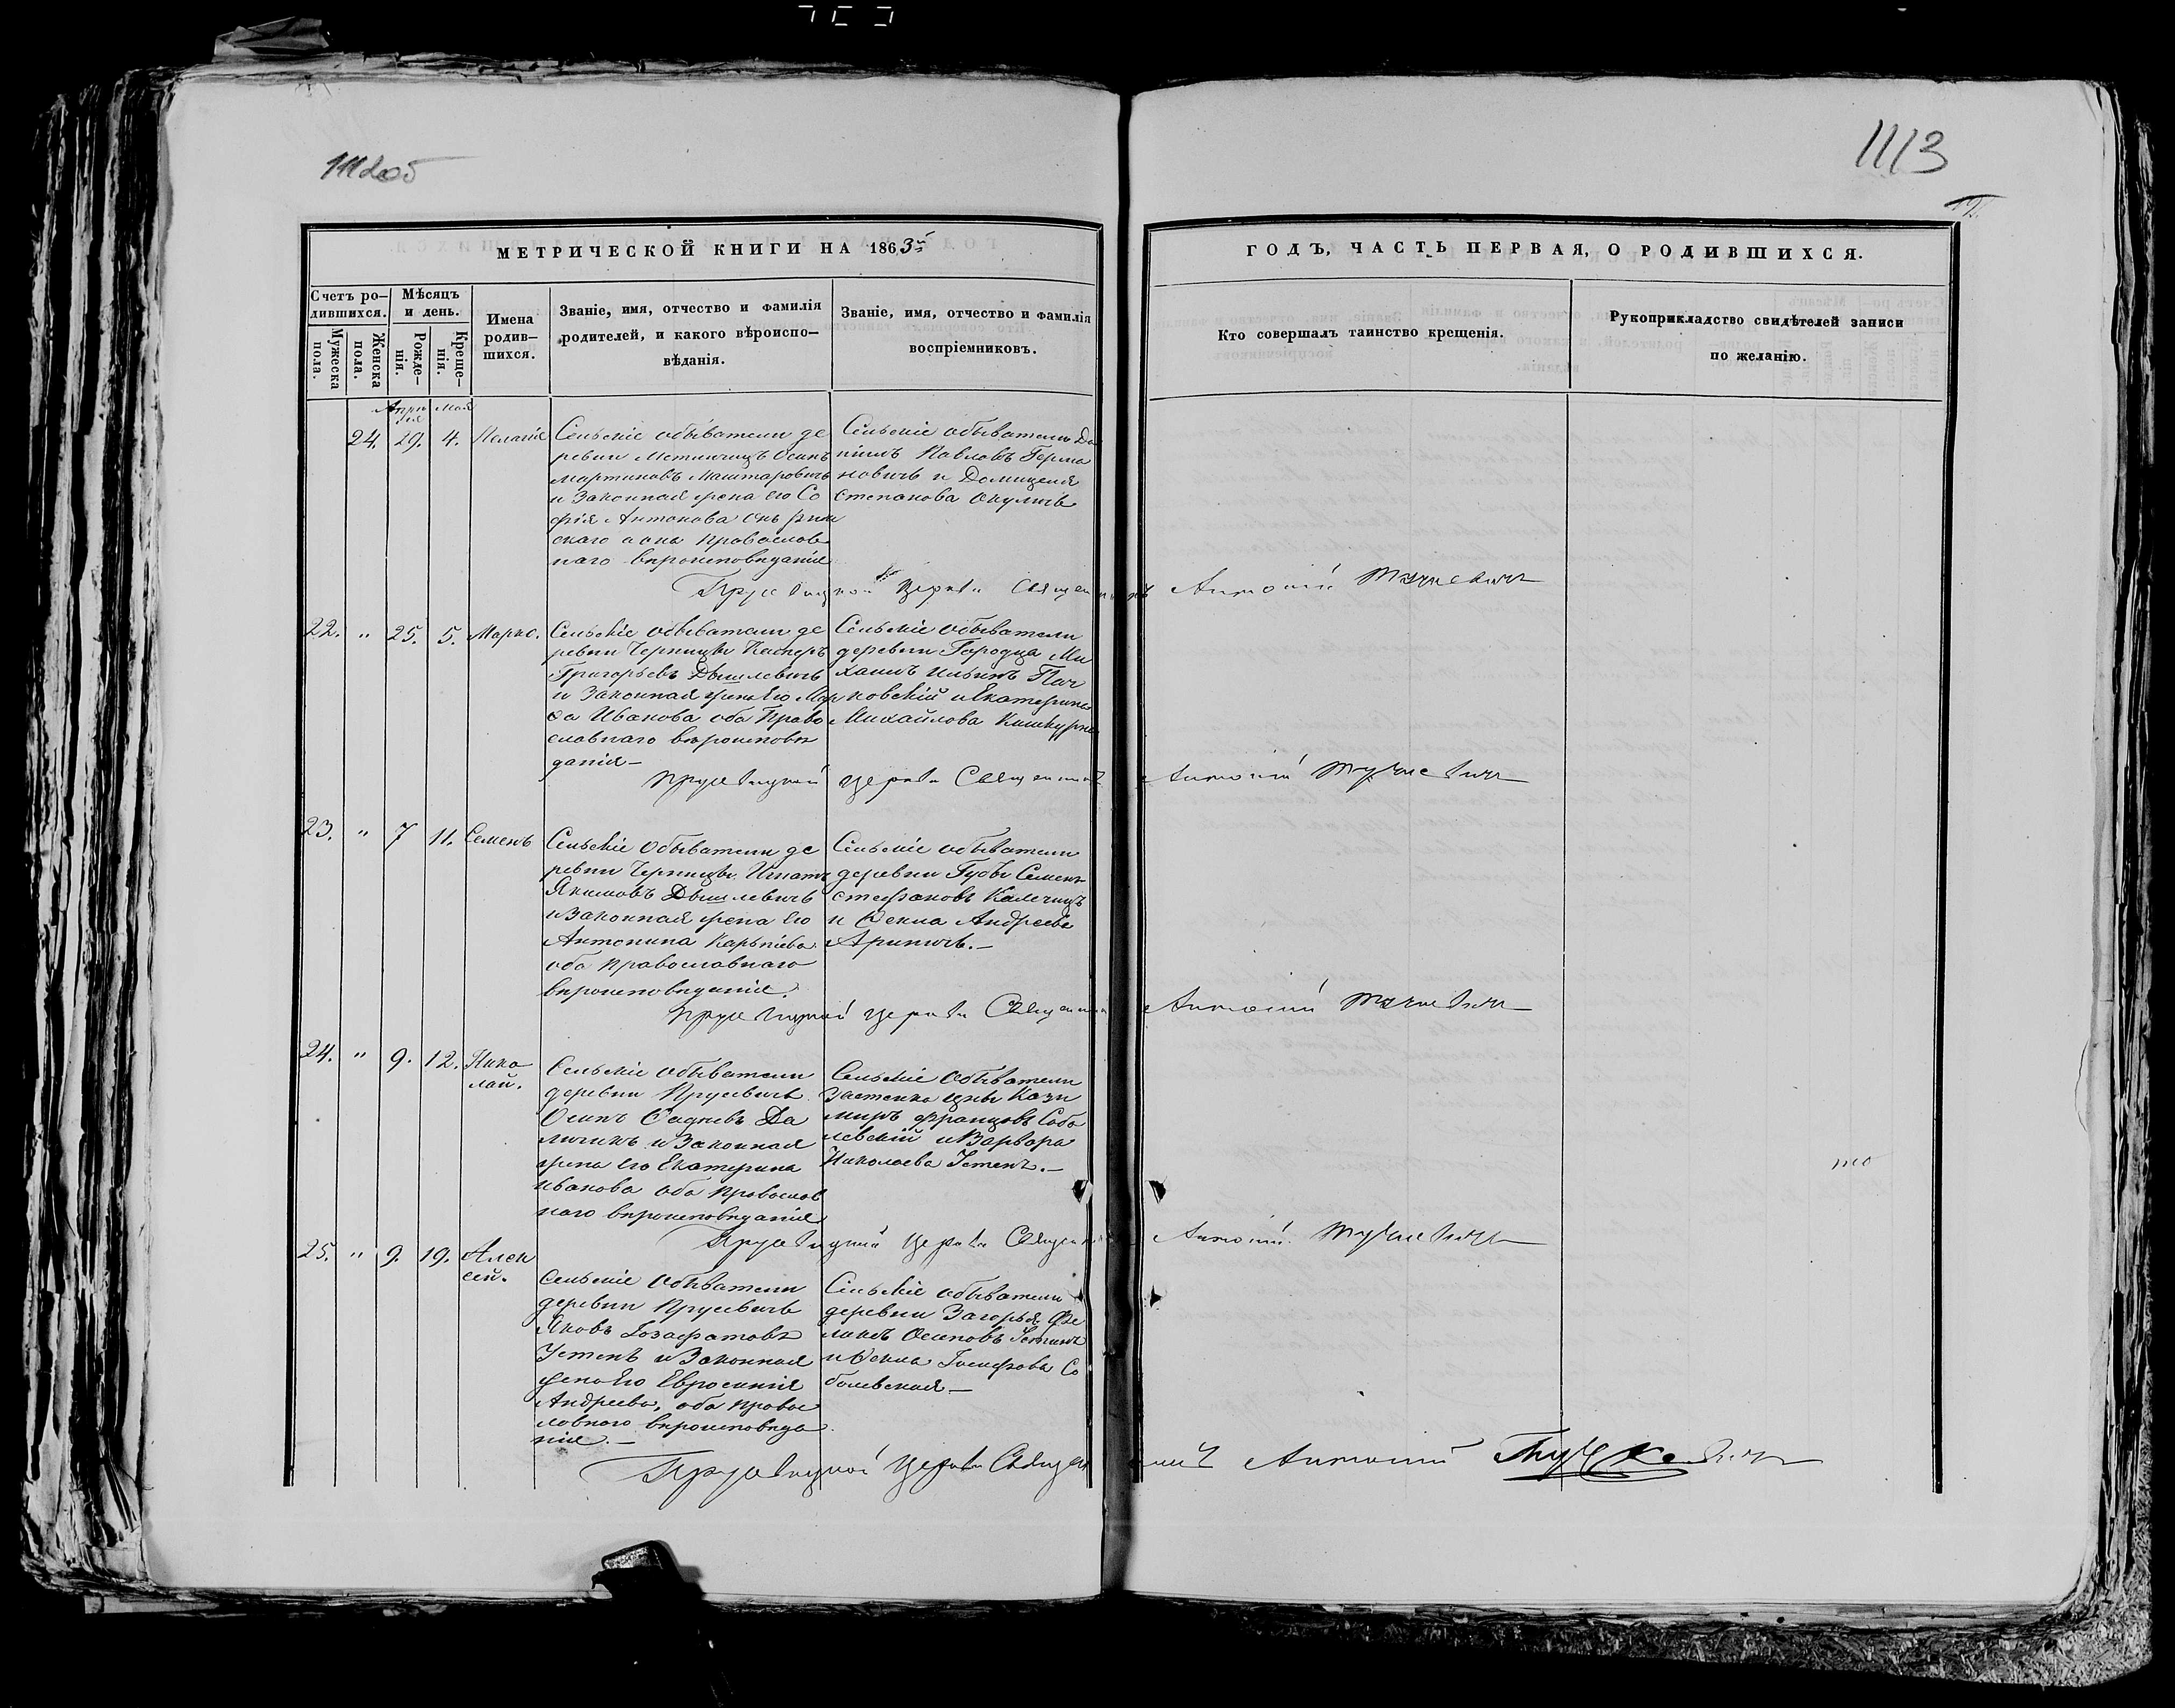 1113
МЕТРИЧЕСКОЙ КНИГИ НА 1863й
ГОДЪ, ЧАСТЬ ПЕРВАЯ, О РОДИВШИХСЯ.
Счетъ ро-
дившихся.
Мужеска
пола.
Женска
пола.
Мѣсяцъ
и день.
Рожде-
нія.
Креще-
нія.
Имена
родив-
шихся.
Званіе, имя, отчество и фамилія
родителей, и какого вѣроиспо-
вѣданія.
Званіе, имя, отчество и фамилія
воспріемниковъ.
Кто совершалъ таинство крещенія.
Рукоприкладство свидѣтелей записи
по желанію.
Апрѣ
ля
Мая
24. 29. 4. Пелагія
Сельскіе обыватели де
ревни Осипъ
Мартиновъ
и Законная жена его Со
фія Антонова онъ рим
скаго а она Православ
наго вѣроисповѣданія
Сельскіе обыватели Да
нiилъ Павловъ Герма
новичъ и Домицеля
Степанова Окуличъ
Прусевицкой Церкви Священникъ Антоній Тучкевичъ
22. " 25. 5. Марко.
Сельскіе обыватели де
ревни Черницы Касперъ
Григорьевъ Дышлевичъ
и Законная жена Его Мар
ѳа Иванова оба Право
славнаго вѣроисповѣ
данія—
Сельскіе обыватели
деревни Городца Ми
хаилъ Ильинъ Пач
ковскій и Екатерина
Михайлова
Прусевицкой Церкви Священникъ Антоній Тучкевичъ
23. " 7 11. Семенъ
Сельскіе Обыватели де
ревни Черницы Игнатъ
Якимовъ Дышлевичъ
и Законная жена Его
Антонина Карпіева
оба православнаго
вѣроисповѣданія.
Сельскіе обыватели
деревни Губы Семенъ
Стефановъ Калечицъ
и Ѳекла Андреева
Арипичъ.—
Прусевицкой Церкви Священникъ Антоній Тучкевичъ
24. " 9. 12. Нико
лай.
Сельскіе обыватели
деревни Прусевичъ
Осипъ Ѳадѣевъ Да
личикъ и Законная
жена Его Екатерина
Иванова оба православ
наго вѣроисповѣданія
Сельскіе Обыватели
Застенка Цны Кази
миръ Францовъ Собо
левскій и Варвара
Николаева Устенъ.—
Прусевицкой Церкви Священникъ Антоній Тучкевичъ
25. " 9. 19. Алек
сей.
Сельскіе Обыватели
деревни Прусевичъ
Яковъ Іозафатовъ
Устенъ и Законная
жена Его Евросинія
Андреева, оба правос
лавнаго вѣроисповѣда
нія.—
Сельскіе обыватели
деревни Загорья Фе
ликсъ Осиповъ Устинъ
и Ѳекла Іосифова Со
болевская—
Прусевицкой Церкви Священникъ Антоній Тучкевичъ